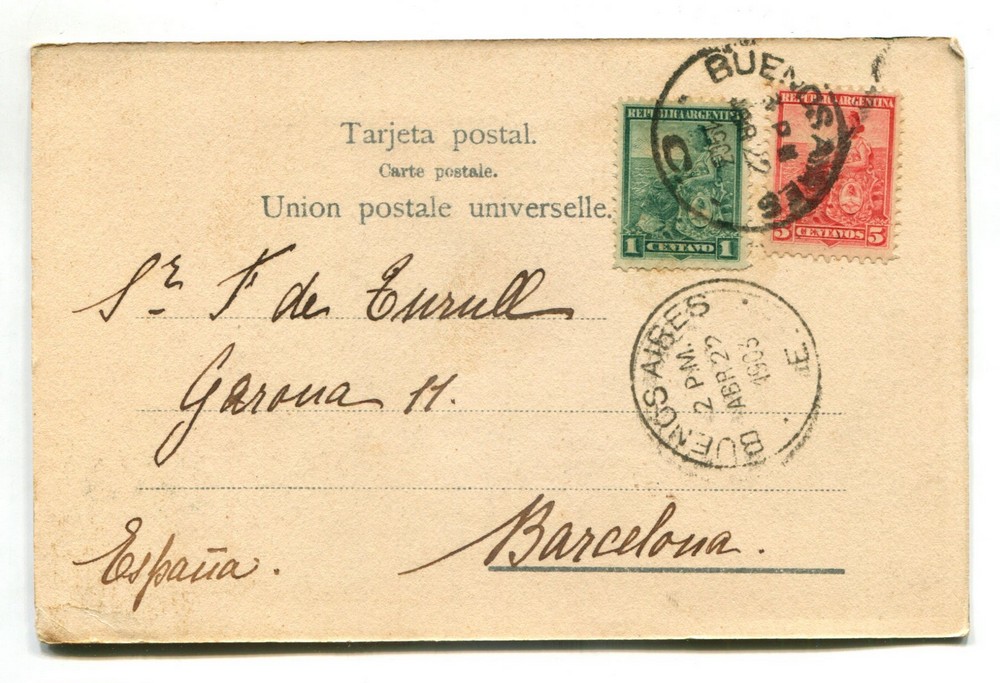 Tarjeta postal.
Carte postale.
Union postale universelle.
REPUBLICA ARGENTINA
1 CENTAVO 1
REPUBLICA ARGENTINA
5 CENTAVOS 5
BUENOS AIRES
ABR 22
Sr F de Turull
Garona 11.
Barcelona.
España.
BUENOS AIRES
2 PM.
ABR 22
1903
E.